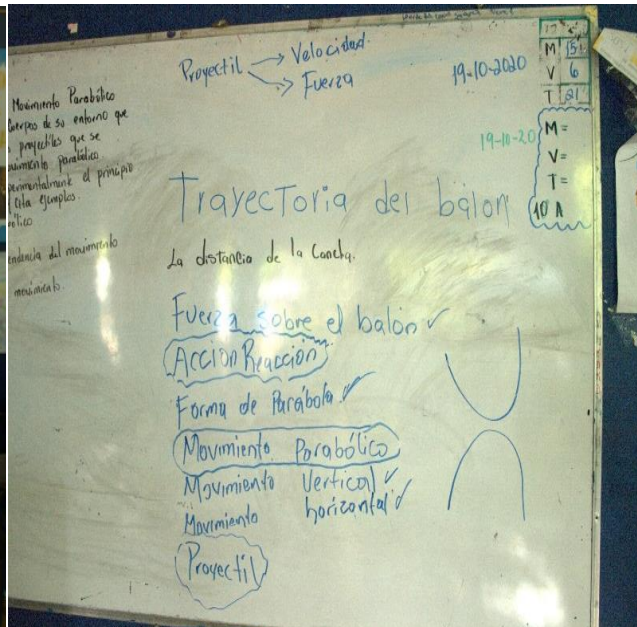 Proyectil → Velocidad.
→ Fuerza
19-10-2020
M 15
V 6
T 21
19-10-20
M=
V=
T=
10 A
Movimiento Parabólico
Cuerpos de su entorno que
proyectiles que se
movimiento parabólico
el principio
cita ejemplos.
del movimiento
movimiento.
Trayectoria del balon
La distancia de la Cancha.
Fuerza sobre el balón ✓
Acción Reacción
Forma de Parábola ✓
Movimiento Parabólico
Movimiento Vertical ✓
Movimiento horizontal ✓
Proyectil